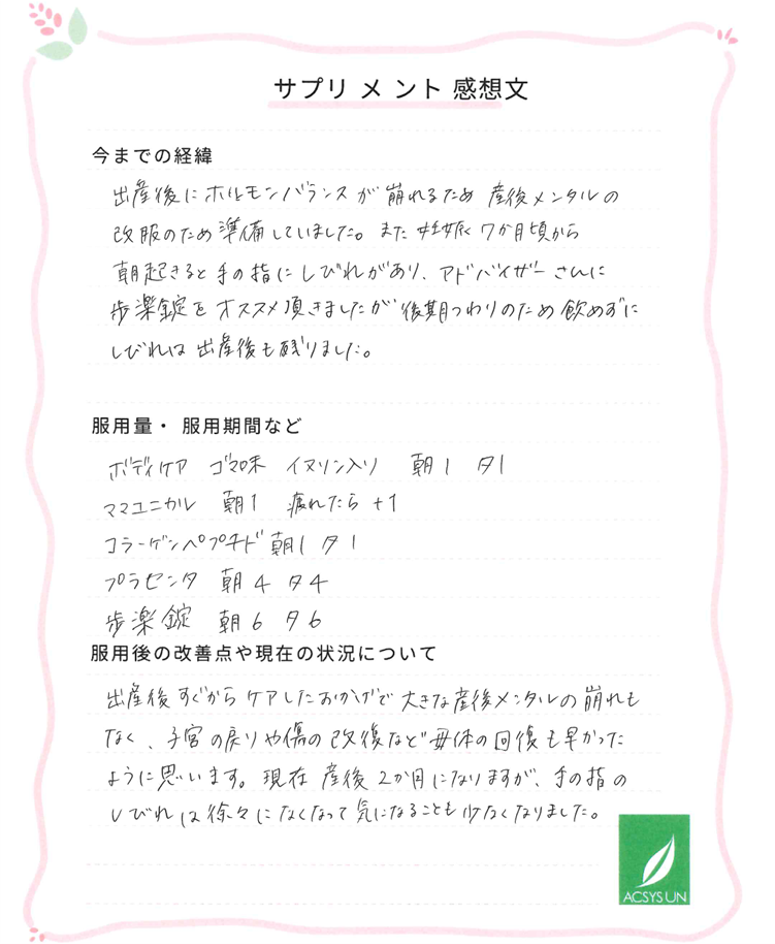 サプリメント感想文
今までの経緯
出産後にホルモンバランスが崩れるため 産後メンタルの
改服のため準備していました。また妊娠7か月頃から
朝起きると手の指にしびれがあり、アドバイザーさんに
歩楽錠をオススメ頂きましたが後期つわりのため飲めずに
しびれは出産後も残りました。
服用量・服用期間など
ボディケア ゴマ味 イヌリン入り 朝1 夕1
ママユニカル 朝1 疲れたら+1
コラーゲンペプチド 朝1 夕1
プラセンタ 朝4 夕4
歩楽錠 朝6 夕6
服用後の改善点や現在の状況について
出産後すぐからケアしたおかげで大きな産後メンタルの崩れも
なく、子宮の戻りや傷の改復など母体の回復も早かった
ように思います。現在 産後2か月になりますが、手の指の
しびれは徐々になくなって気になることも少なくなりました。
ACSYSUN